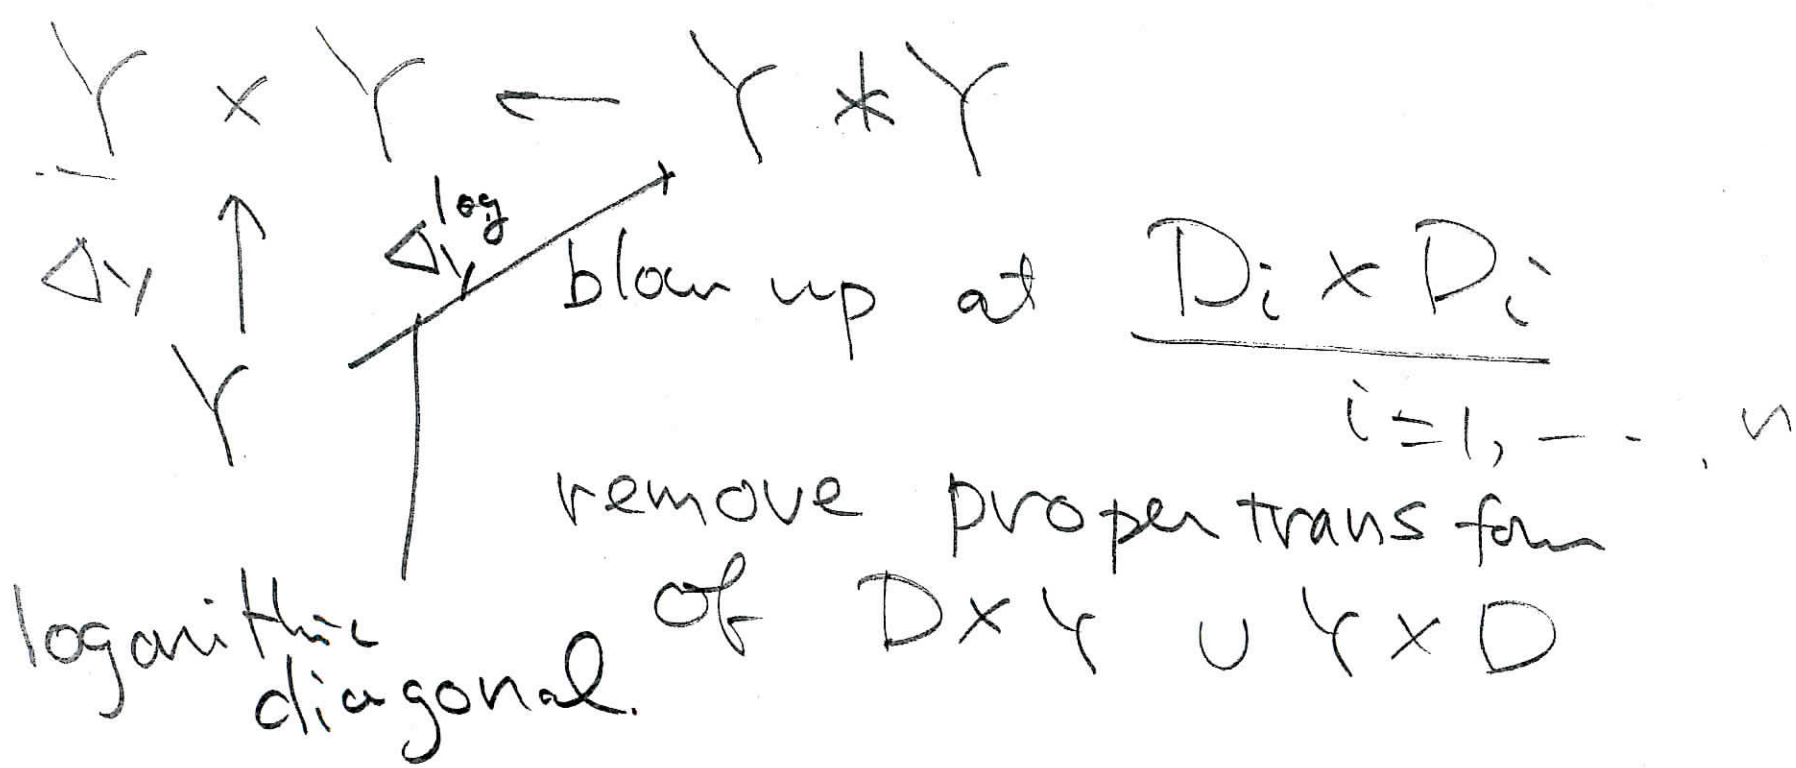 Y × Y ← Y * Y
Δ_Y ↑ Δ_Y^log
blow up at D_i × D_i
Y
i = 1, ..., n
remove proper transform
of D × Y ∪ Y × D
logarithmic
diagonal.